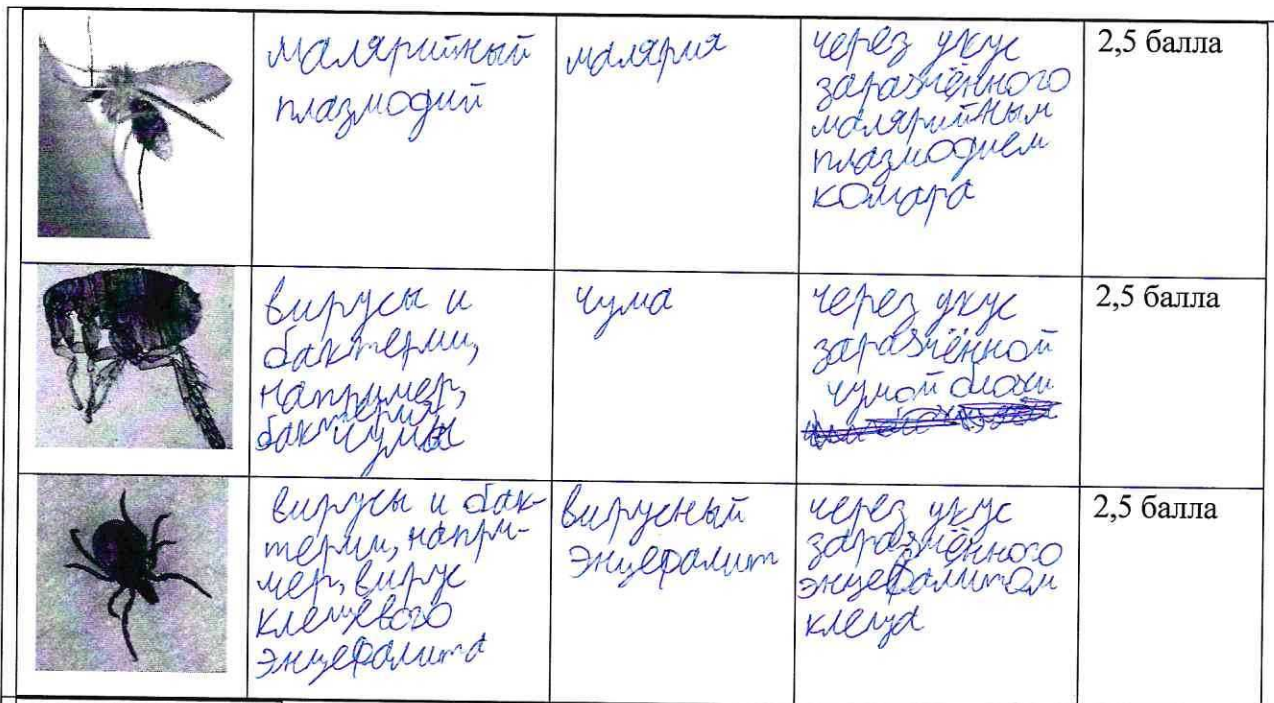 малярийный
плазмодий
малярия
через укус
заражённого
малярийным
плазмодием
комара
2,5 балла
вирусы и
бактерии,
например,
бактерия
чумы
чума
через укус
заражённой
чумой блохи
2,5 балла
вирусы и бак-
терии, напри-
мер, вирус
клещевого
энцефалита
вирусный
энцефалит
через укус
заражённого
энцефалитом
клеща
2,5 балла